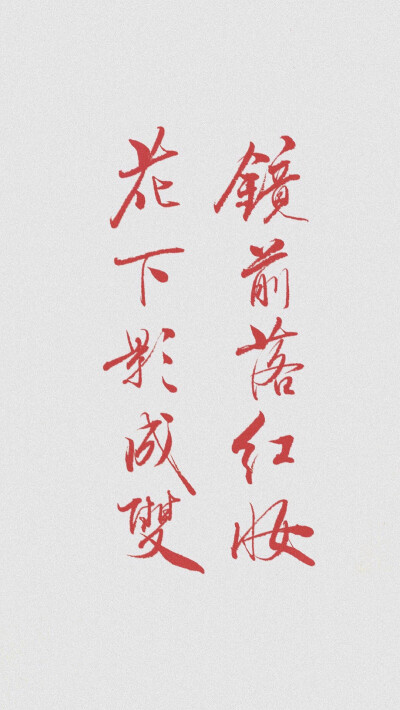 鏡前落红妝
花下影成雙